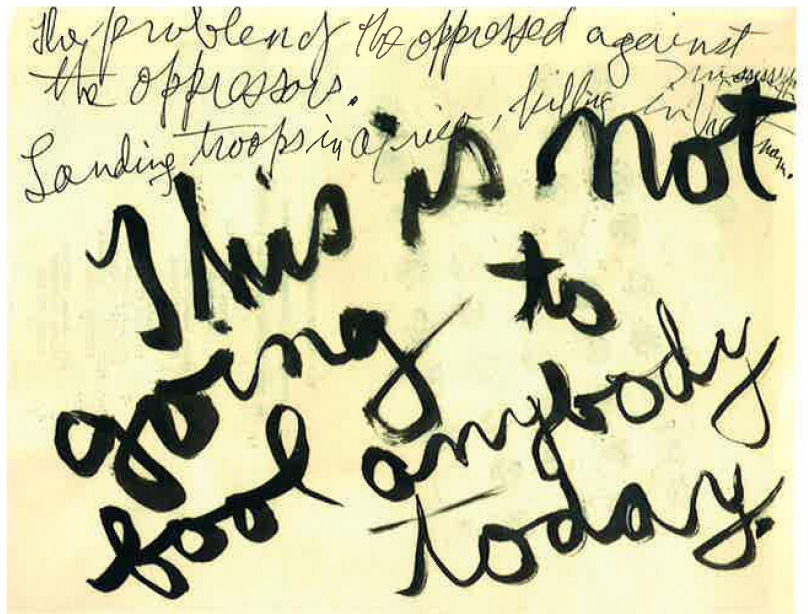 The problem of the oppressed against
the oppressors.
Landing troops in africa, killing in Viet nam.
Mississippi
This is not
going to
fool anybody
today.